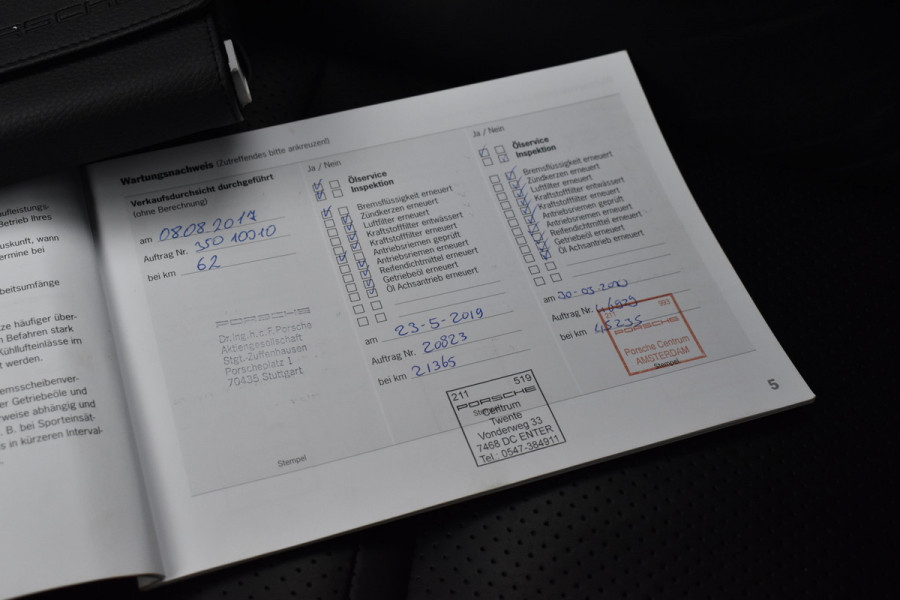 PORSCHE
Wartungsnachweis (Zutreffendes bitte ankreuzen!)
Verkaufsdurchsicht durchgeführt
(ohne Berechnung)
am 08.08.2017
Auftrag Nr. 350 10010
bei km 62
PORSCHE
Dr.Ing.h.c.F.Porsche
Aktiengesellschaft
Stgt.-Zuffenhausen
Porscheplatz 1
70435 Stuttgart
Stempel
Ja / Nein
Ölservice
Inspektion
Bremsflüssigkeit erneuert
Zündkerzen erneuert
Luftfilter erneuert
Kraftstofffilter entwässert
Kraftstofffilter erneuert
Antriebsriemen geprüft
Antriebsriemen erneuert
Reifendichtmittel erneuert
Getriebeöl erneuert
Öl Achsantrieb erneuert
am 23-5-2019
Auftrag Nr. 20823
bei km 21365
211 519
PORSCHE
Centrum
Twente
Vonderweg 33
7468 DC ENTER
Tel.: 0547-384911
Ja / Nein
Ölservice
Inspektion
Bremsflüssigkeit erneuert
Zündkerzen erneuert
Luftfilter erneuert
Kraftstofffilter entwässert
Kraftstofffilter erneuert
Antriebsriemen geprüft
Antriebsriemen erneuert
Reifendichtmittel erneuert
Getriebeöl erneuert
Öl Achsantrieb erneuert
am
Auftrag Nr.
bei km 45235
211
PORSCHE
Porsche Centrum
AMSTERDAM
Stempel
5
aufleistungs-
Betrieb Ihres
uskunft, wann
ermine bei
beitsumfänge
ze häufiger über-
n Befahren stark
Kühllufteinlässe im
t werden.
emsscheibenver-
er Getriebeöle und
weise abhängig und
. B. bei Sporteinsät-
s in kürzeren Interval-